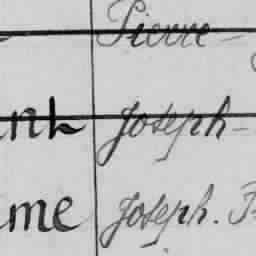 Pierre -
nt Joseph -
me Joseph.